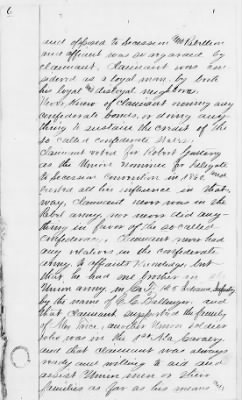 6
and opposed to Secession & Rebellion
and affiant was so regarded by
claimant, Claimant was con
sidered as a loyal man, by both
his loyal & disloyal neighbors.
Never knew of Claimant owning any
Confederate bonds, or doing any-
thing to sustain the credit of the
so called confederate States.
Claimant voted for Robert
as the Union Nominee for Delegate
to Secession Convention in 1860 and
exerted all his influence in that
way, Claimant never was in the
Rebel army, nor never did any-
thing in favor of the so called
Confederacy, Claimant never had
any relatives in the confederate
Army to affiants Knowledge, but
that he had one brother in the
Union army, in Co. Indiana Infantry
by the name of C. C. Bellinger, and
that Claimant supported the family
of Price, another Union soldier
who was in the 1st Ala Cavalry
and that claimant was always
ready and willing to aid and
assist Union men or their
families as far as his means